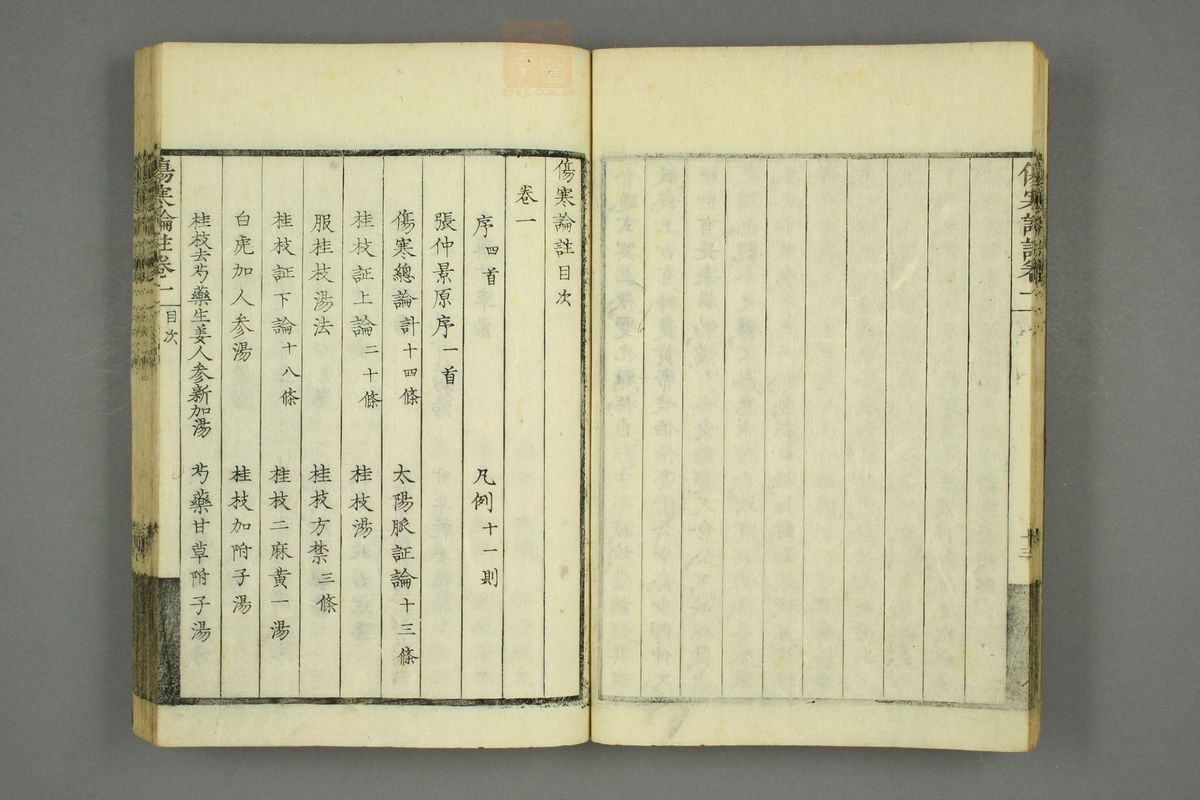 傷寒論註目次
卷一
序四首 凡例十一則
張仲景原序一首
傷寒總論計十四條 太陽脈証論十三條
桂枝証上論二十條 桂枝湯
服桂枝湯法 桂枝方禁三條
桂枝証下論十八條 桂枝二麻黄一湯
白虎加人参湯 桂枝加附子湯
桂枝去芍藥生姜人参新加湯 芍藥甘草附子湯
傷寒論註卷一 目次
zysj.com.cn